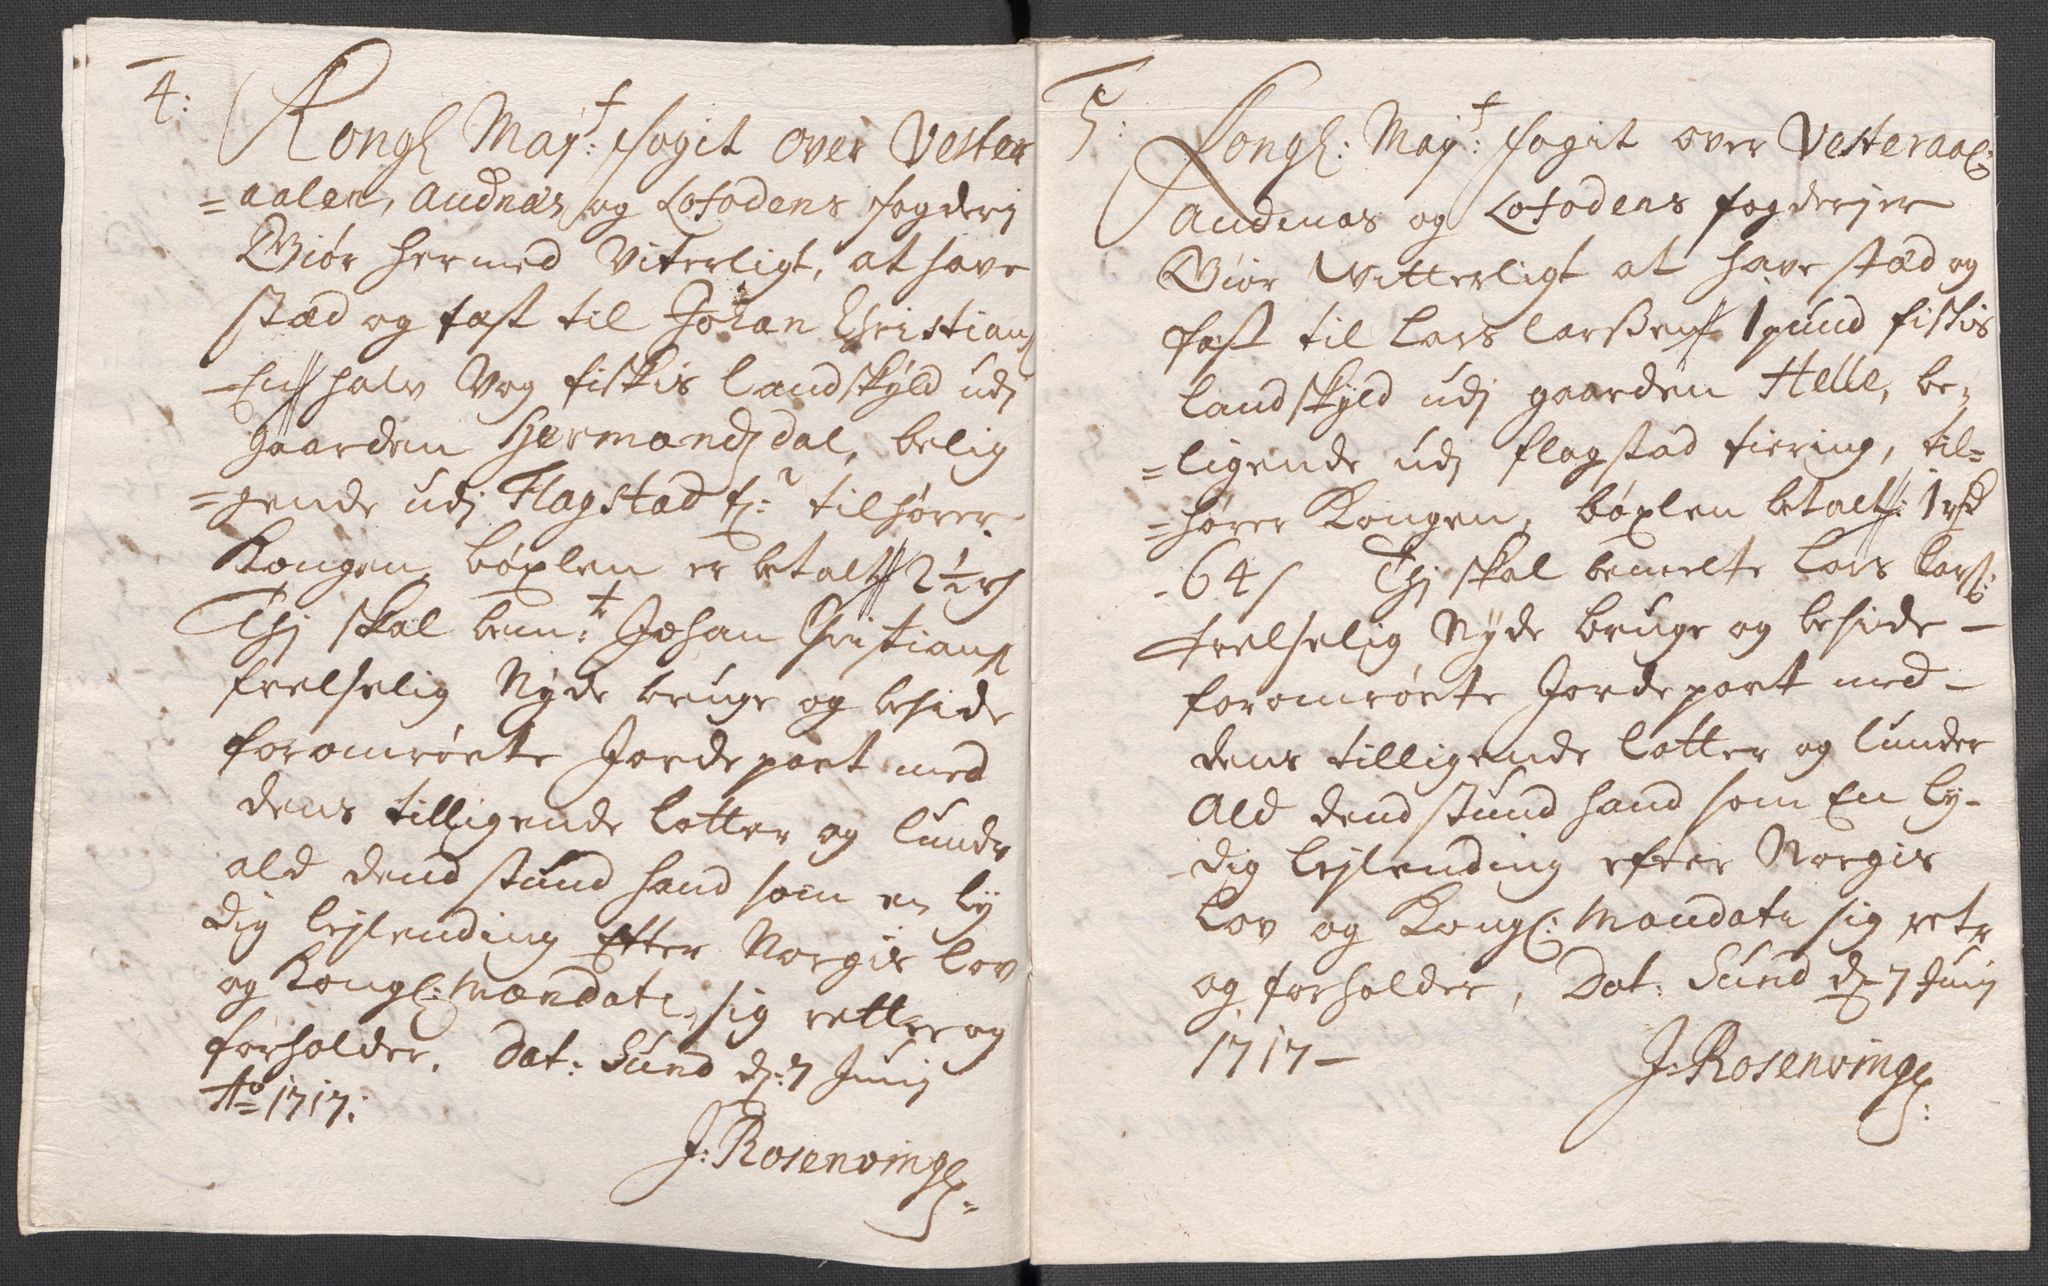 4:
Kongl Mayt: fogit over Vester
=aalen, Andnæs og Lofodens fogderj
Giör hermed Viterligt, at have
stæd og fæst til Johan Christians
En halv Vog fiskis landskÿld udj
gaarden Hermandsdal, belig
=gende udj Flagstad f: tilhörer
Kongen, böxlen er betalt 2½ rd
Thj skal bemt: Johan Christians
frelselig Nÿde bruge og beside
foromrörte Jordepart med
dens tilligende lotter og lunde
ald dend stund hand som en lÿ
dig lejlending Efter Norgis lov
og Kongl: Mandate, sig retter og
forholder. Dat: Sund d: 7 Junij
Ao 1717:
J: Rosenvinge:
5:
Kongl: Mayt: fogit over Vesteraal:
Andnæs og Lofodens fogderjer
Giör Witterligt at have stæd og
fæst til Lars larßen 1 pund fiskis
landskÿld udj gaarden Helle, be=
=ligende udj flagstad fiering, til=
=hörer Kongen, böxlen betalt: 1 rd
64 s Thj skal bemelte Lars Larss:
frelselig Nÿde bruge og beside –
foromrörte Jordepart med –
dens tilligende lotter og lunder
Ald dend stund hand som En lÿ-
dig lejlending efter Norgis
lov og Kongl: Mandate sig rette
og forholder, Dat: Sund d: 7 Junij
1717 –
J: Rosenvinge: